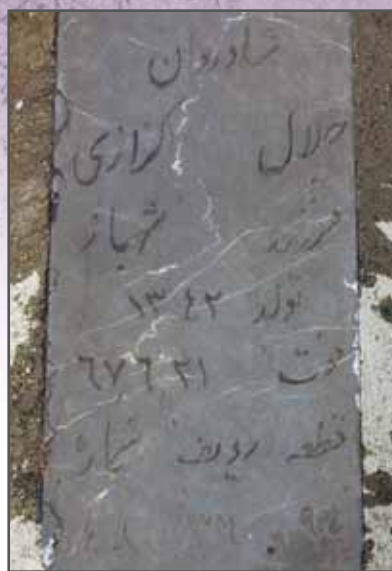 شادروان
جلال کزازی
فرزند شهباز
تولد ۱۳٤۲
فوت ۲۱ ٦ ٦٧
قطعه ردیف شماره